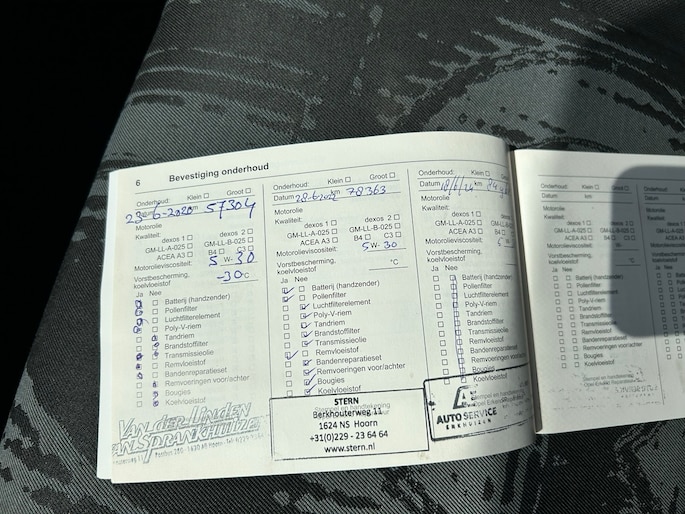 6 Bevestiging onderhoud
Onderhoud: Klein ☐ Groot ☐
Datum 23-6-2020 km 57304
Motorolie
Kwaliteit:
dexos 1 ☐ dexos 2 ☐
GM-LL-A-025 ☐ GM-LL-B-025 ☐
ACEA A3 ☐ B4 ☐ C3 ☐
Motorolieviscositeit: 5 W- 30
Vorstbescherming,
koelvloeistof -30 °C
Ja Nee
Batterij (handzender)
Pollenfilter
Luchtfilterelement
Poly-V-riem
Tandriem
Brandstoffilter
Transmissieolie
Remvloeistof
Bandenreparatieset
Remvoeringen voor/achter
Bougies
Koelvloeistof
VAN DER LINDEN
VAN SPRANKHUIZEN
Onderhoud: Klein ☐ Groot ☐
Datum 28-6-2022 km 78363
Motorolie
Kwaliteit:
dexos 1 ☐ dexos 2 ☐
GM-LL-A-025 ☐ GM-LL-B-025 ☐
ACEA A3 ☐ B4 ☐ C3 ☐
Motorolieviscositeit: 5 W- 30
Vorstbescherming,
koelvloeistof °C
Ja Nee
Batterij (handzender)
Pollenfilter
Luchtfilterelement
Poly-V-riem
Tandriem
Brandstoffilter
Transmissieolie
Remvloeistof
Bandenreparatieset
Remvoeringen voor/achter
Bougies
Koelvloeistof
STERN
Berkhouterweg 11
1624 NS Hoorn
+31(0)229 - 23 64 64
www.stern.nl
Onderhoud: Klein ☐ Groot
Datum 18/6/24 km
Motorolie
Kwaliteit:
dexos 1 ☐
GM-LL-A-025 ☐
ACEA A3 ☐
Motorolieviscositeit:
Vorstbescherming,
koelvloeistof
Ja Nee
Batterij (handzender)
Pollenfilter
Luchtfilterelement
Poly-V-riem
Tandriem
Brandstoffilter
Transmissieolie
Remvloeistof
Bandenreparatieset
Remvoeringen voor/achter
Bougies
Koelvloeistof
AUTO SERVICE
ENKHUIZEN
Onderhoud: Klein ☐ Groot ☐
Datum km
Motorolie
Kwaliteit:
dexos 1 ☐ dexos 2 ☐
GM-LL-A-025 ☐ GM-LL-B-025 ☐
ACEA A3 ☐ B4 ☐ C3 ☐
Motorolieviscositeit:
Vorstbescherming,
koelvloeistof
Ja Nee
Batterij (handzender)
Pollenfilter
Luchtfilterelement
Poly-V-riem
Tandriem
Brandstoffilter
Transmissieolie
Remvloeistof
Bandenreparatieset
Remvoeringen voor/achter
Bougies
Koelvloeistof